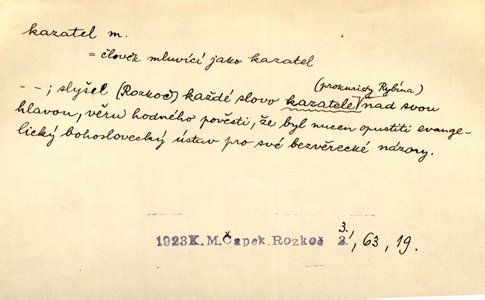 kazatel m.
= člověk mluvící jako kazatel
(prokuristy Rybína)
– – ; slyšel (Rozkoč) každé slovo kazatele nad svou
hlavou, věru hodného pověsti, že byl nucen opustiti evange-
lický bohoslovecký ústav pro své bezvěrecké názory.
3.
1923 K.M.Čapek.Rozkoč 2., 63, 19.